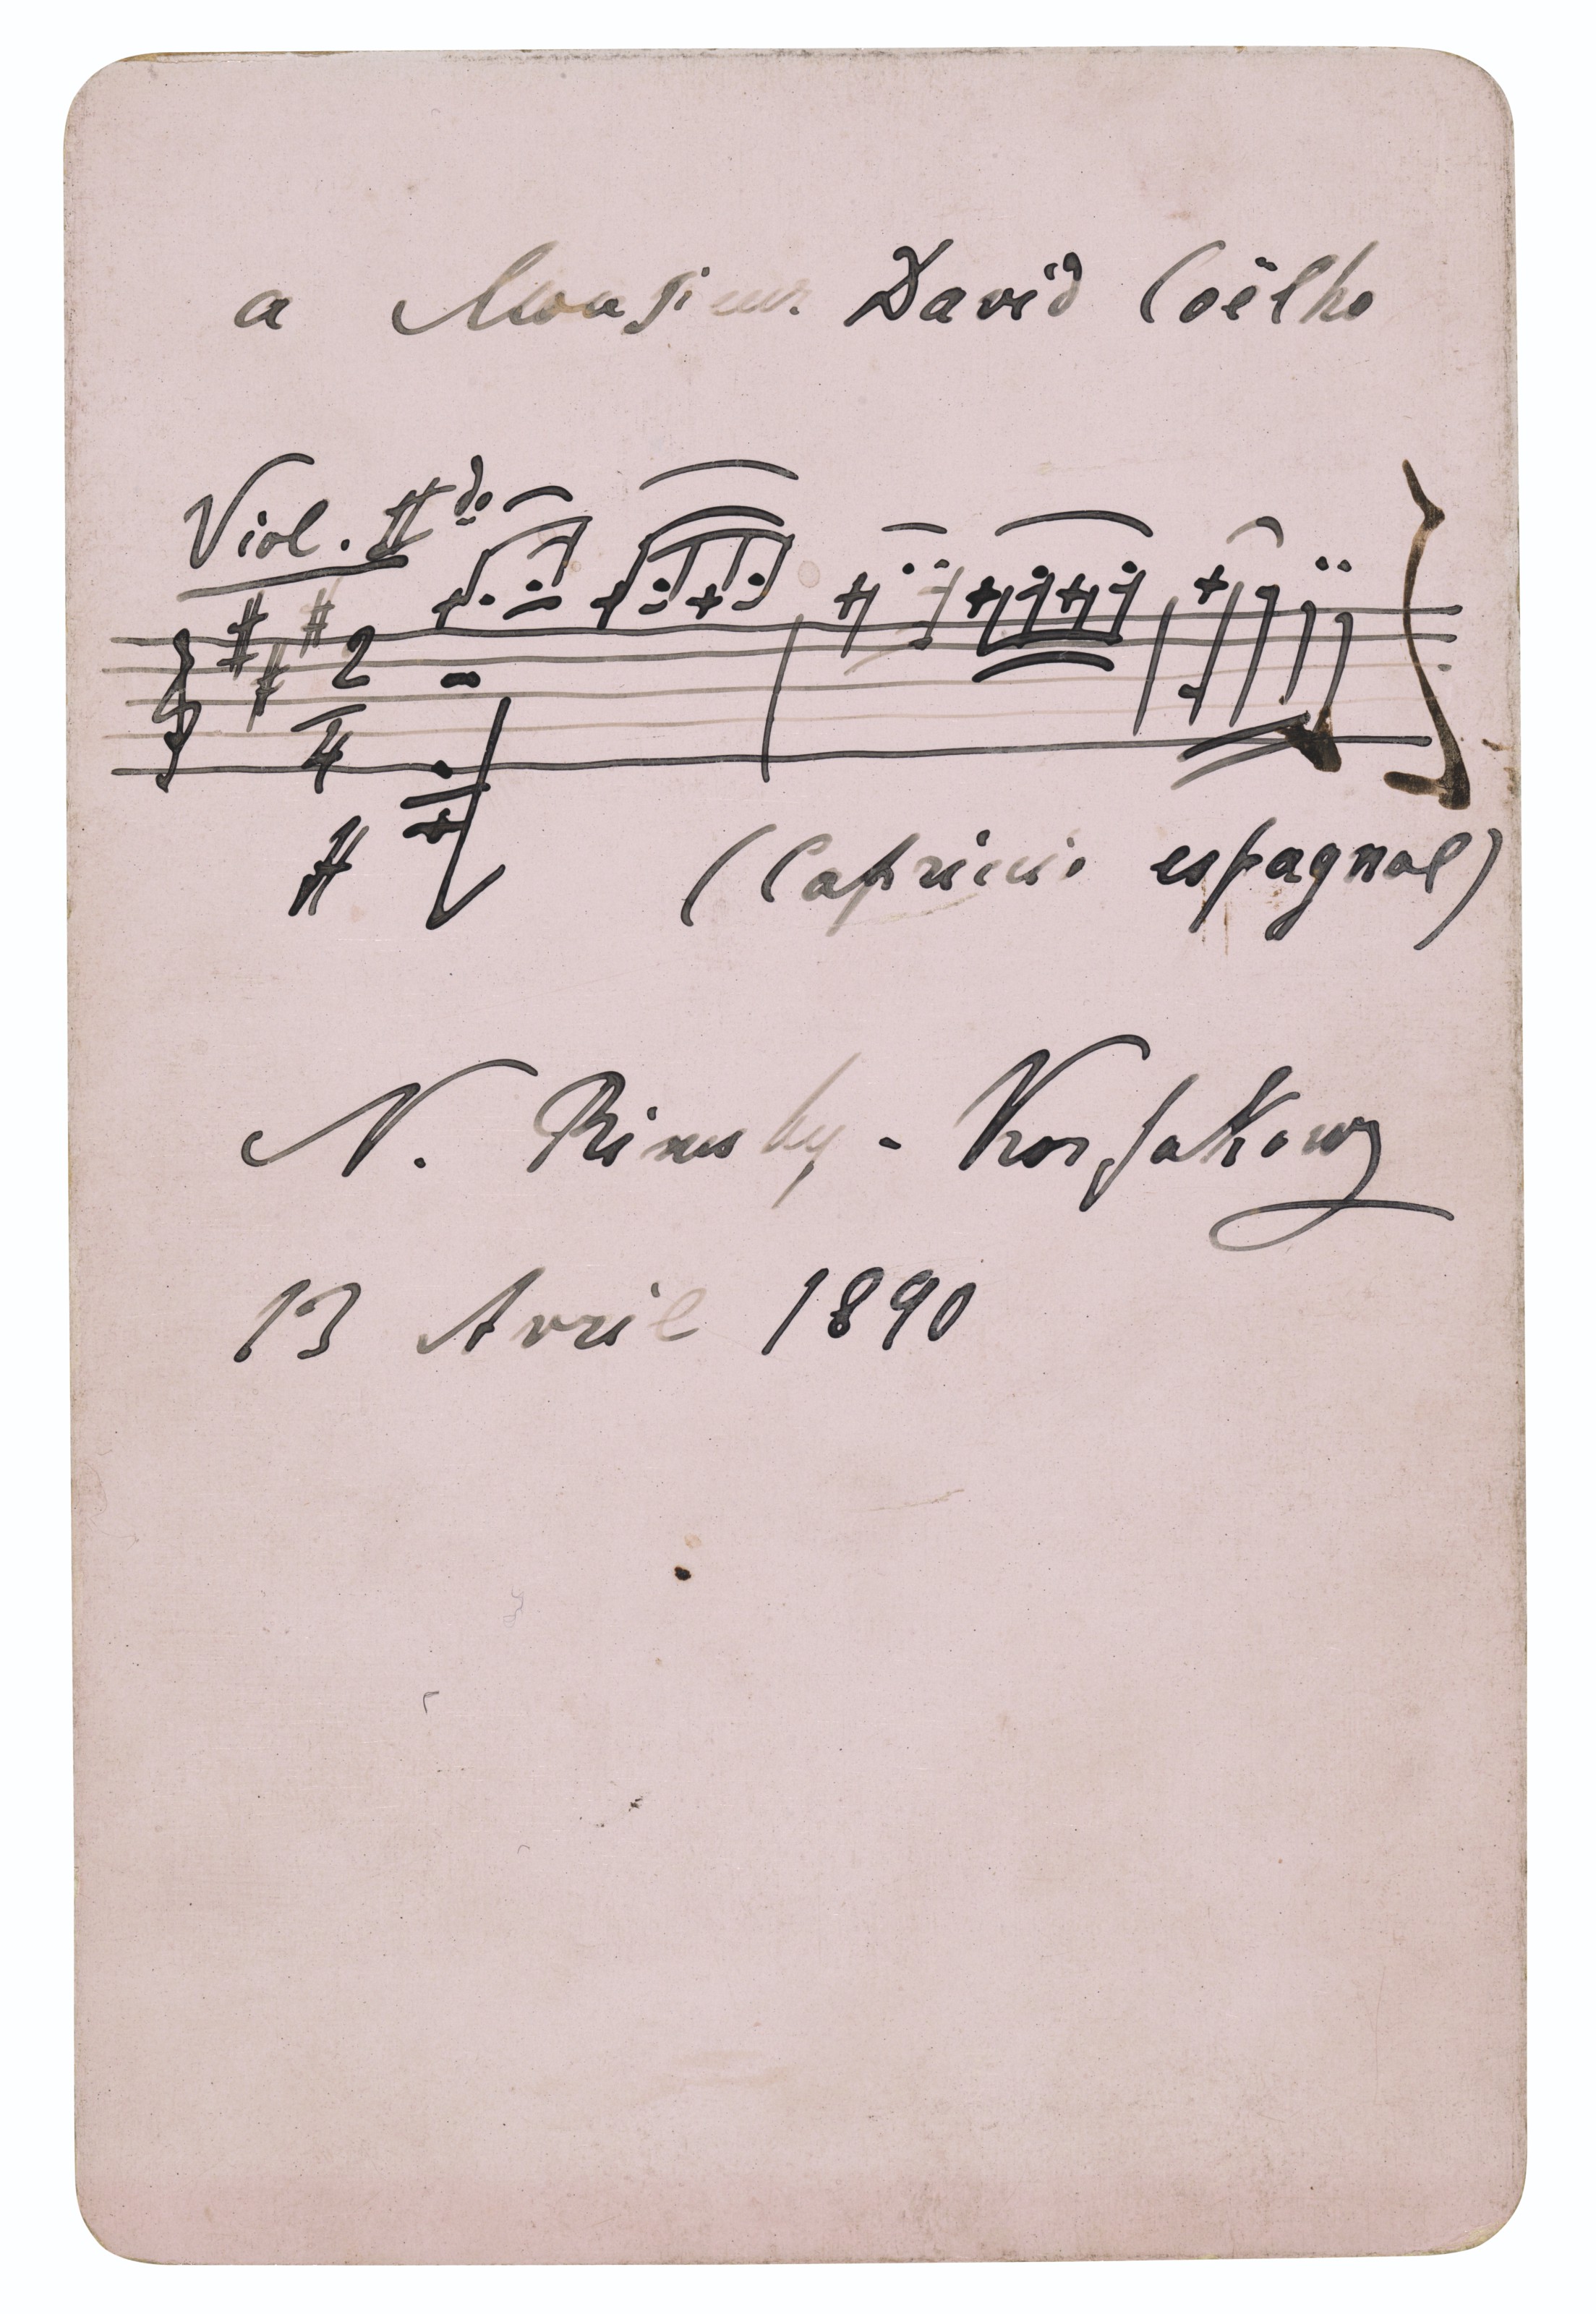 a Monsieur David Coëlho
Viol. IIdo
2
4
(Capriccio espagnol)
N. Rimsky-Korsakow
13 Avril 1890